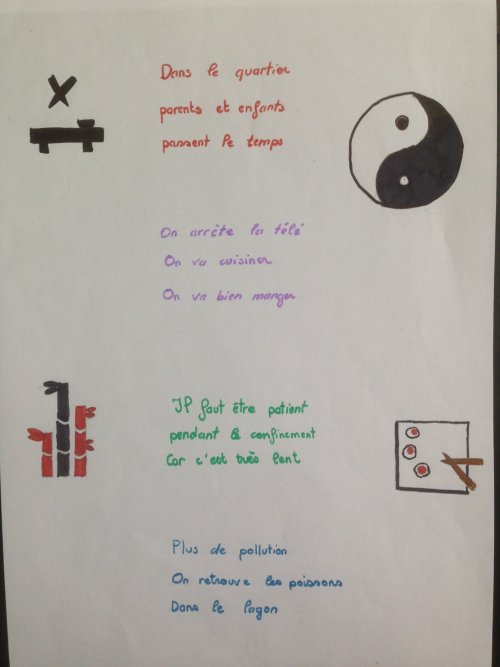 Dans le quartier
parents et enfants
passent le temps
On arrête la télé
On va cuisiner
On va bien manger
Il faut être patient
pendant le confinement
Car c'est très lent
Plus de pollution
On retrouve les poissons
Dans le lagon